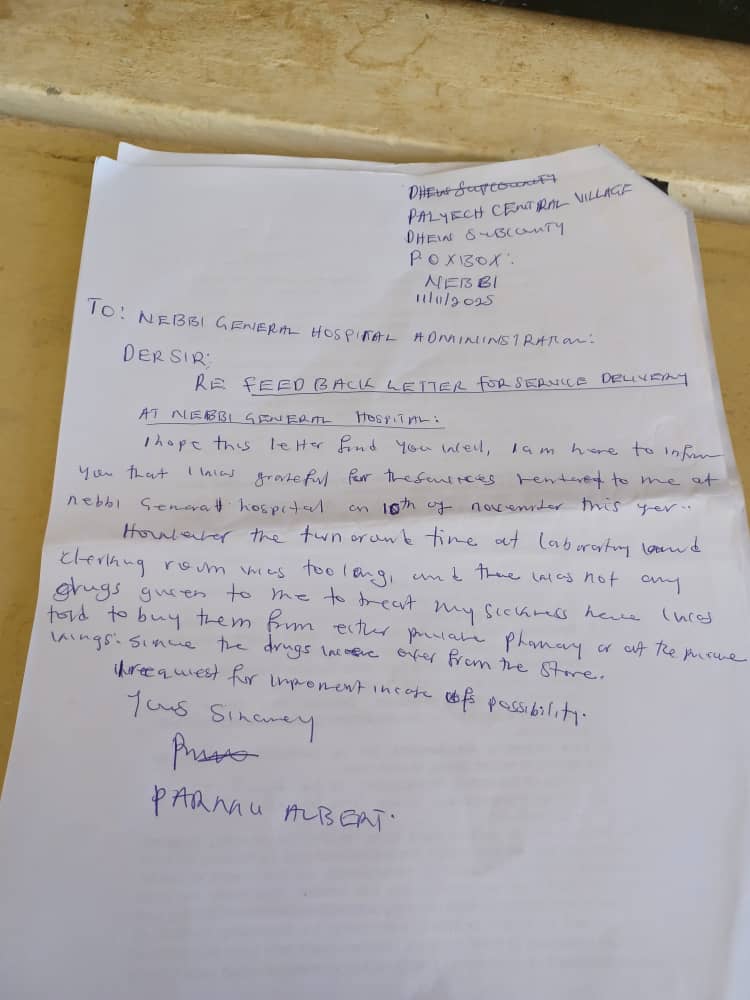 DHEIN SUBCOUNTY
PALYECH CENTRAL VILLAGE
DHEIN SUBCOUNTY
P O X BOX:
NEBBI
11/11/2025
TO: NEBBI GENERAL HOSPITAL ADMININISTRATION:
DER SIR:
RE FEED BACK LETTER FOR SERVICE DELIVERY
AT NEBBI GENERAL HOSPITAL:
I hope this letter find you well, I am here to inform
you that I was grateful for the services rentered to me at
nebbi General hospital on 10th of november this yer..
However the turn orount time at laboratory and
clerking room was too long, and there was not any
drugs given to me to treat my sickness hence I was
told to buy them from either private pharmacy or at the private
wings. Since the drugs were over from the store.
I request for improment incase of possibility.
Yours Sincerey
ALBERT.